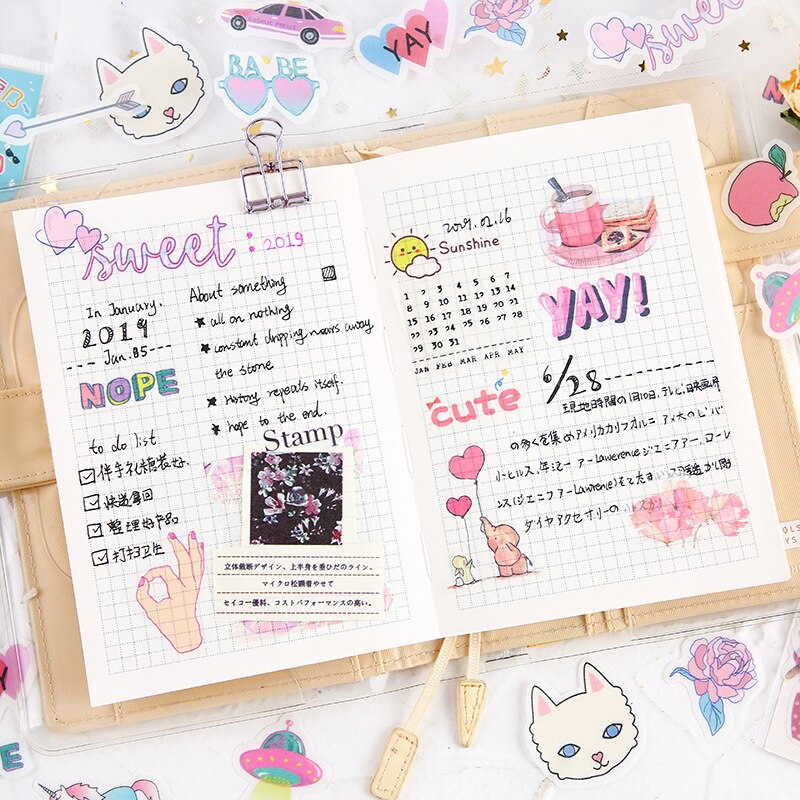 YAY
sweet
BABE
sweet : 2019
In January.
2019
Jan. 05
NOPE
About something
all on nothing
constant dripping wears away
the stone
History repeats itself.
hope to the end.
to do list
伴手礼精装好.
快递拿回
整理好产品
打扫卫生
Stamp
立体裁断デザイン、上半身を垂ひだのライン、
マイクロ松顕着やせて
セイコー優料、コストパフォーマンスの高い。
2019.02.16
Sunshine
1 2 3 4 5 6 7
8 9 10 11 12 13 14
15 16 17 18 19 20 21
22 23 24 25 26 27 28
29 30 31
JAN FEB MAR APR MAY
YAY!
cute
6/28
現地時間の1月10日、テレビ、映画界
の多くを集めアメリカカリフォルニ アメ大のビバ
リーヒルズ. ジェニファー. ローレ
ンス(ジェニファーLawrence)
ダイヤアクセサリーの
YAY